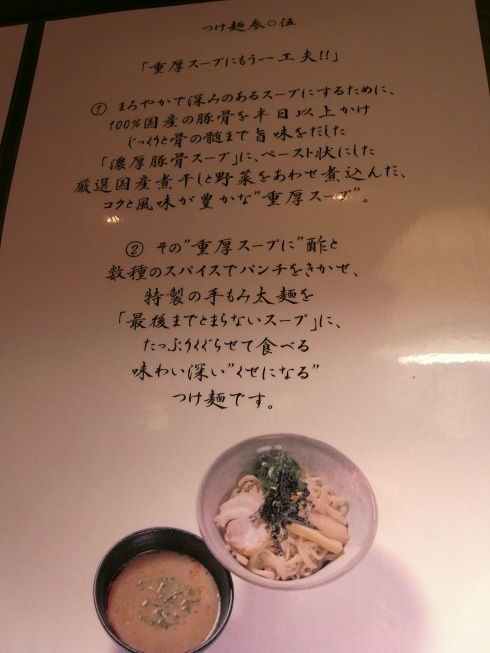 つけ麺参〇伍
「重厚スープにもう一工夫!!」
① まろやかで深みのあるスープにするために、
100%国産の豚骨を半日以上かけ
じっくりと骨の髄まで旨味をだした
「濃厚豚骨スープ」に、ペースト状にした
厳選国産煮干しと野菜をあわせ煮込んだ、
コクと風味が豊かな"重厚スープ"。
② その"重厚スープに"酢と
数種のスパイスでパンチをきかせ、
特製の手もみ太麺を
「最後までとまらないスープ」に、
たっぷりくぐらせて食べる
味わい深い"くせになる"
つけ麺です。